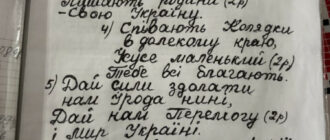 лишають родини (2р)
-Свою Україну.
4) Співають Колядки
в далекому краю,
Ісусе маленький (2р)
Тебе всі благають.
5) Дай сили здолати
нам Ірода нині,
Дай нам Перемогу (2р)
і мир Україні.